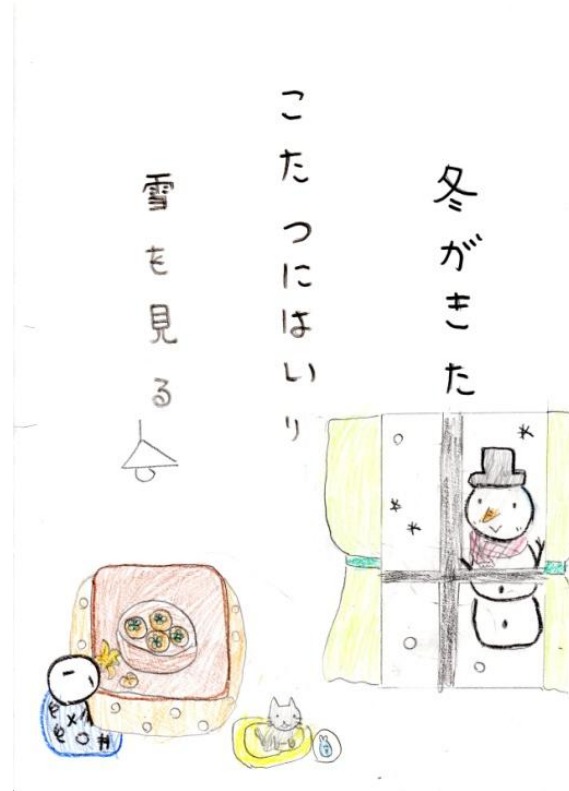 冬がきた
こたつにはいり
雪を見る